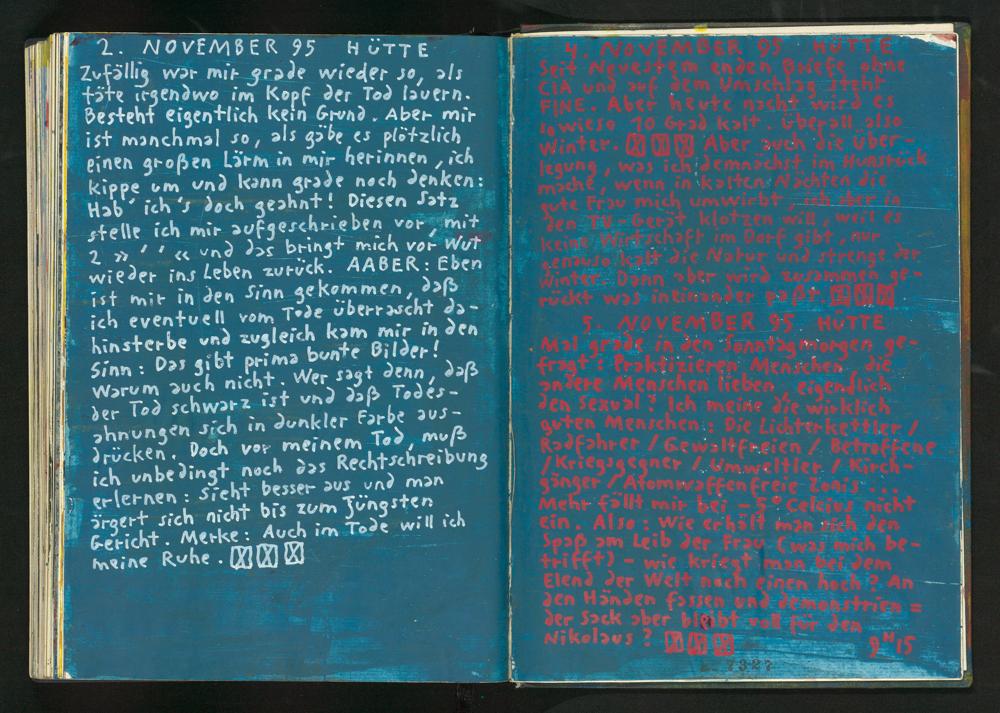 2. NOVEMBER 95 HÜTTE
Zufällig war mir grade wieder so, als
täte irgendwo im Kopf der Tod lauern.
Besteht eigentlich kein Grund. Aber mir
ist manchmal so, als gäbe es plötzlich
einen großen Lärm in mir herinnen, ich
kippe um und kann grade noch denken:
Hab' ich's doch geahnt! Diesen Satz
stelle ich mir aufgeschrieben vor, mit
2 » ' ' « und das bringt mich vor Wut
wieder ins Leben zurück. AABER: Eben
ist mir in den Sinn gekommen, daß
ich eventuell vom Tode überrascht da-
hinsterbe und zugleich kam mir in den
Sinn: Das gibt prima bunte Bilder!
Warum auch nicht. Wer sagt denn, daß
der Tod schwarz ist und daß Todes-
ahnungen sich in dunkler Farbe aus-
drücken. Doch vor meinem Tod, muß
ich unbedingt noch das Rechtschreibung
erlernen: Sieht besser aus und man
ärgert sich nicht bis zum Jüngsten
Gericht. Merke: Auch im Tode will ich
meine Ruhe.
4. NOVEMBER 95 HÜTTE
Seit Neuestem enden Briefe ohne
CIA und auf dem Umschlag steht
FINE. Aber heute nacht wird es
sowieso 10 Grad kalt. Überall also
Winter. Aber auch die Über-
legung, was ich demnächst im Hunsrück
mache, wenn in kalten Nächten die
gute Frau mich umwirbt, ich aber in
den TV-Gerät klotzen will, weil es
keine Wirtschaft im Dorf gibt, nur
genauso kalt die Natur und strenge der
Winter. Dann aber wird zusammen ge-
rückt was ineinander paßt.
5. NOVEMBER 95 HÜTTE
Mal grade in den Sonntagmorgen ge-
fragt: Praktizieren Menschen, die
andere Menschen lieben, eigendlich
den Sexual? Ich meine die wirklich
guten Menschen: Die Lichterkettler /
Radfahrer / Gewaltfreien / Betroffene
/ Kriegsgegner / Umweltler / Kirch-
gänger / Atomwaffenfreie Zonis ...
Mehr fällt mir bei -5° Celcius nicht
ein. Also: Wie erhält man sich den
Spaß am Leib der Frau (was mich be-
trifft) - wie kriegt man bei dem
Elend der Welt noch einen hoch? An
den Händen fassen und demonstrien =
der Sack aber bleibt voll für den
Nikolaus? 9 H 15
7327